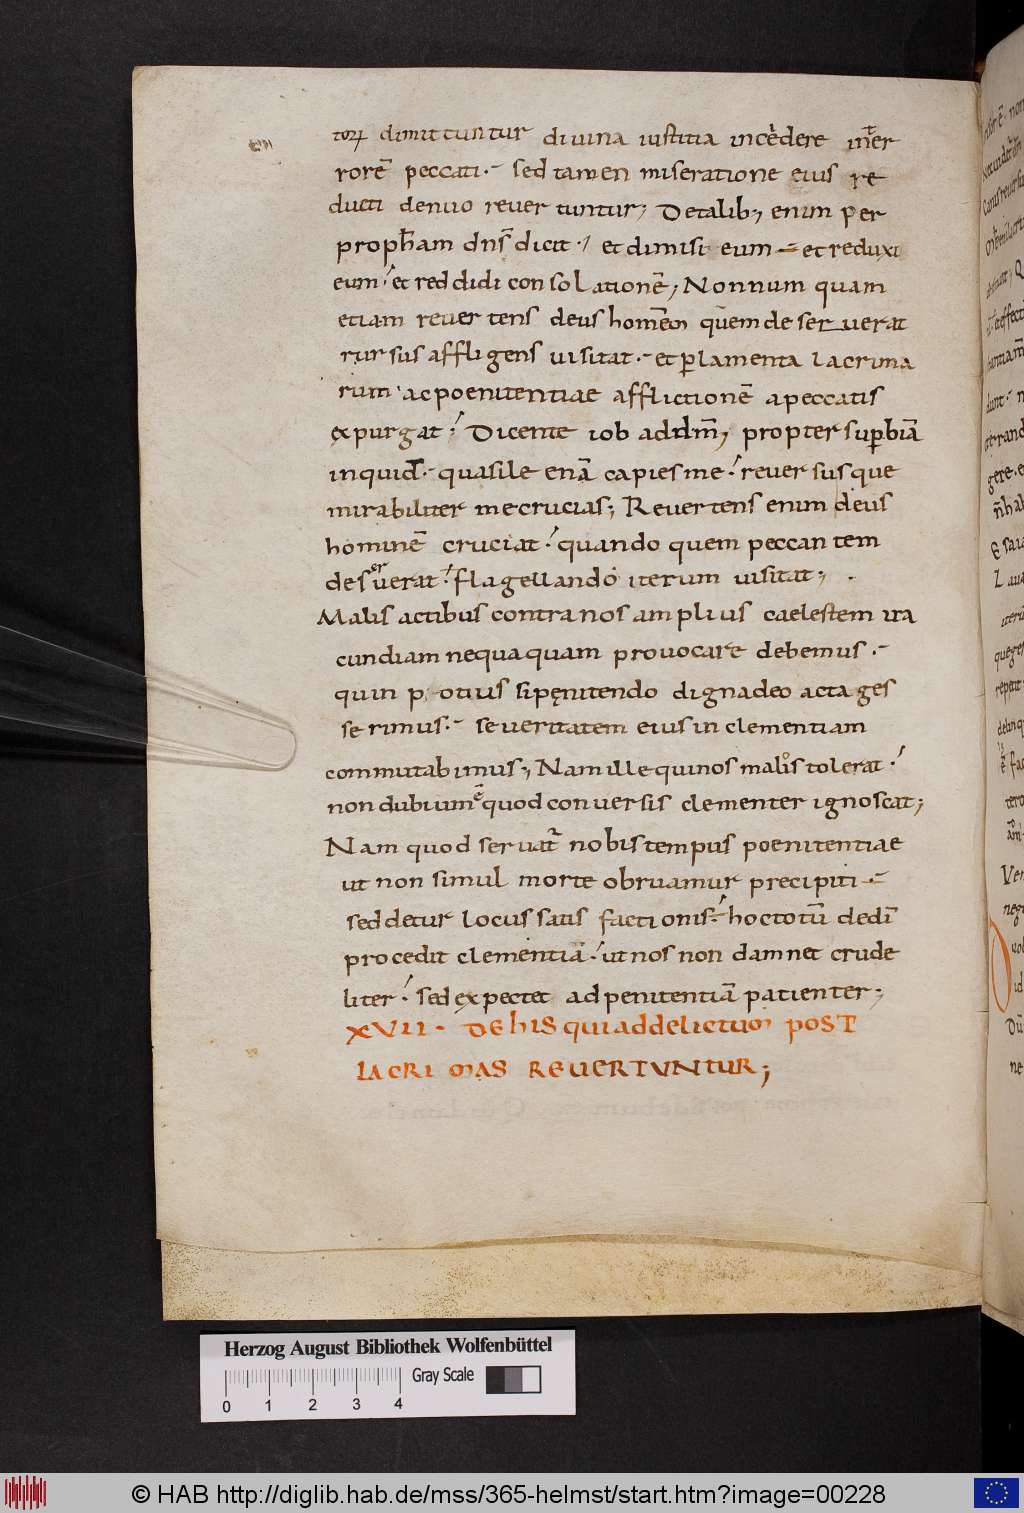 torꝝ dimittuntur diuina iustitia incedere int̄er
rorē peccati· sed tamen miseratione eius re
ducti denuo reuertuntur; De talib; enim per
proph̄am dn̄s dicit· et dimisi eum et reduxi
eum· et reddidi consolationē; Non num quam
etiam reuertens deus homēm quem deseruerat
rursus affligens uisitat· et ꝑ lamenta lacrima
rum· ac poenitentiae afflictionē a peccatis
expurgat· Dicente iob ad dm̄; propter suꝑbiā
inquid· quasi leenā capies me· reuersusque
mirabiliter me crucias; Reuertens enim deus
hominē cruciat· quando quem peccantem
deseruerat· flagellando iterum uisitat;
Malis actibus contra nos amplius caelestem ira
cundiam nequaquam prouocare debemus·
quin potius si pęnitendo digna deo acta ges
serimus· seueritatem eius in clementiam
commutabimus; Nam ille qui nos malos tolerat·
non dubium ē quod conuersis clementer ignoscat;
Nam quod seruat̄ nobis tempus poenitentiae
ut non simul morte obruamur precipiti
sed detur locus satisfactionis· hoc totū de dei
procedit clementiā· ut nos non damnet crude
liter· sed expectet ad penitentiā patienter;
XVII· De his qui ad delictum post
lacrimas reuertuntur;
Herzog August Bibliothek Wolfenbüttel
Gray Scale
0 1 2 3 4
© HAB http://diglib.hab.de/mss/365-helmst/start.htm?image=00228